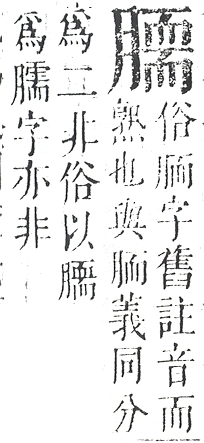 俗胹字舊註音而
熟也與胹義同分
爲二非俗以
爲臑字亦非